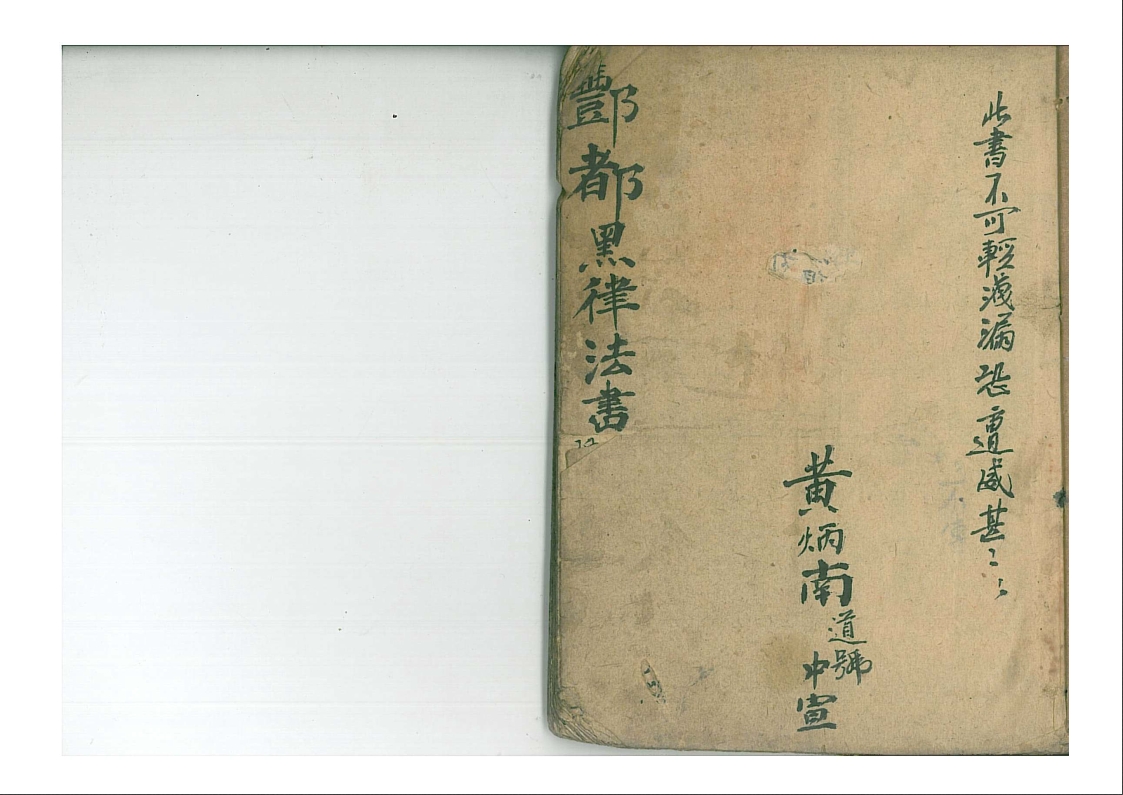 此書不可輕洩漏恐遭威甚〻
黃炳南
道號
中宣
酆都黑律法書